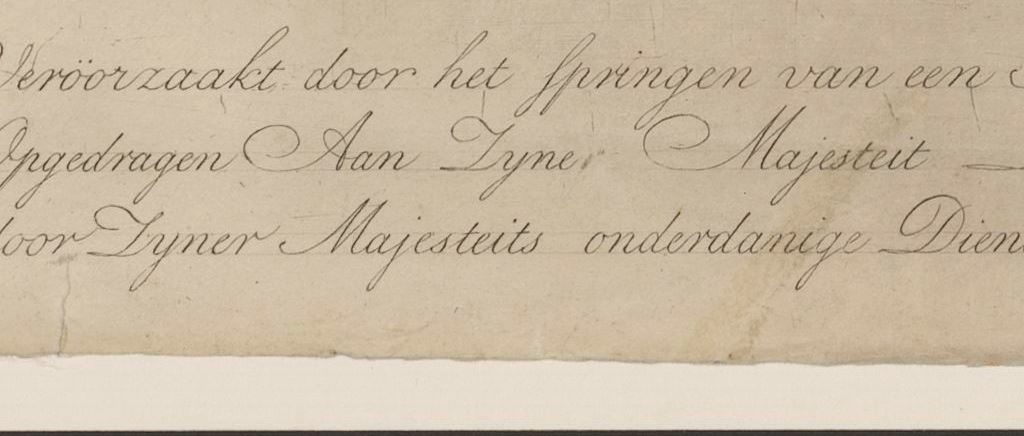 Veröorzaakt door het springen van een
Opgedragen Aan Zyne Majesteit
door Zyner Majesteits onderdanige Dien